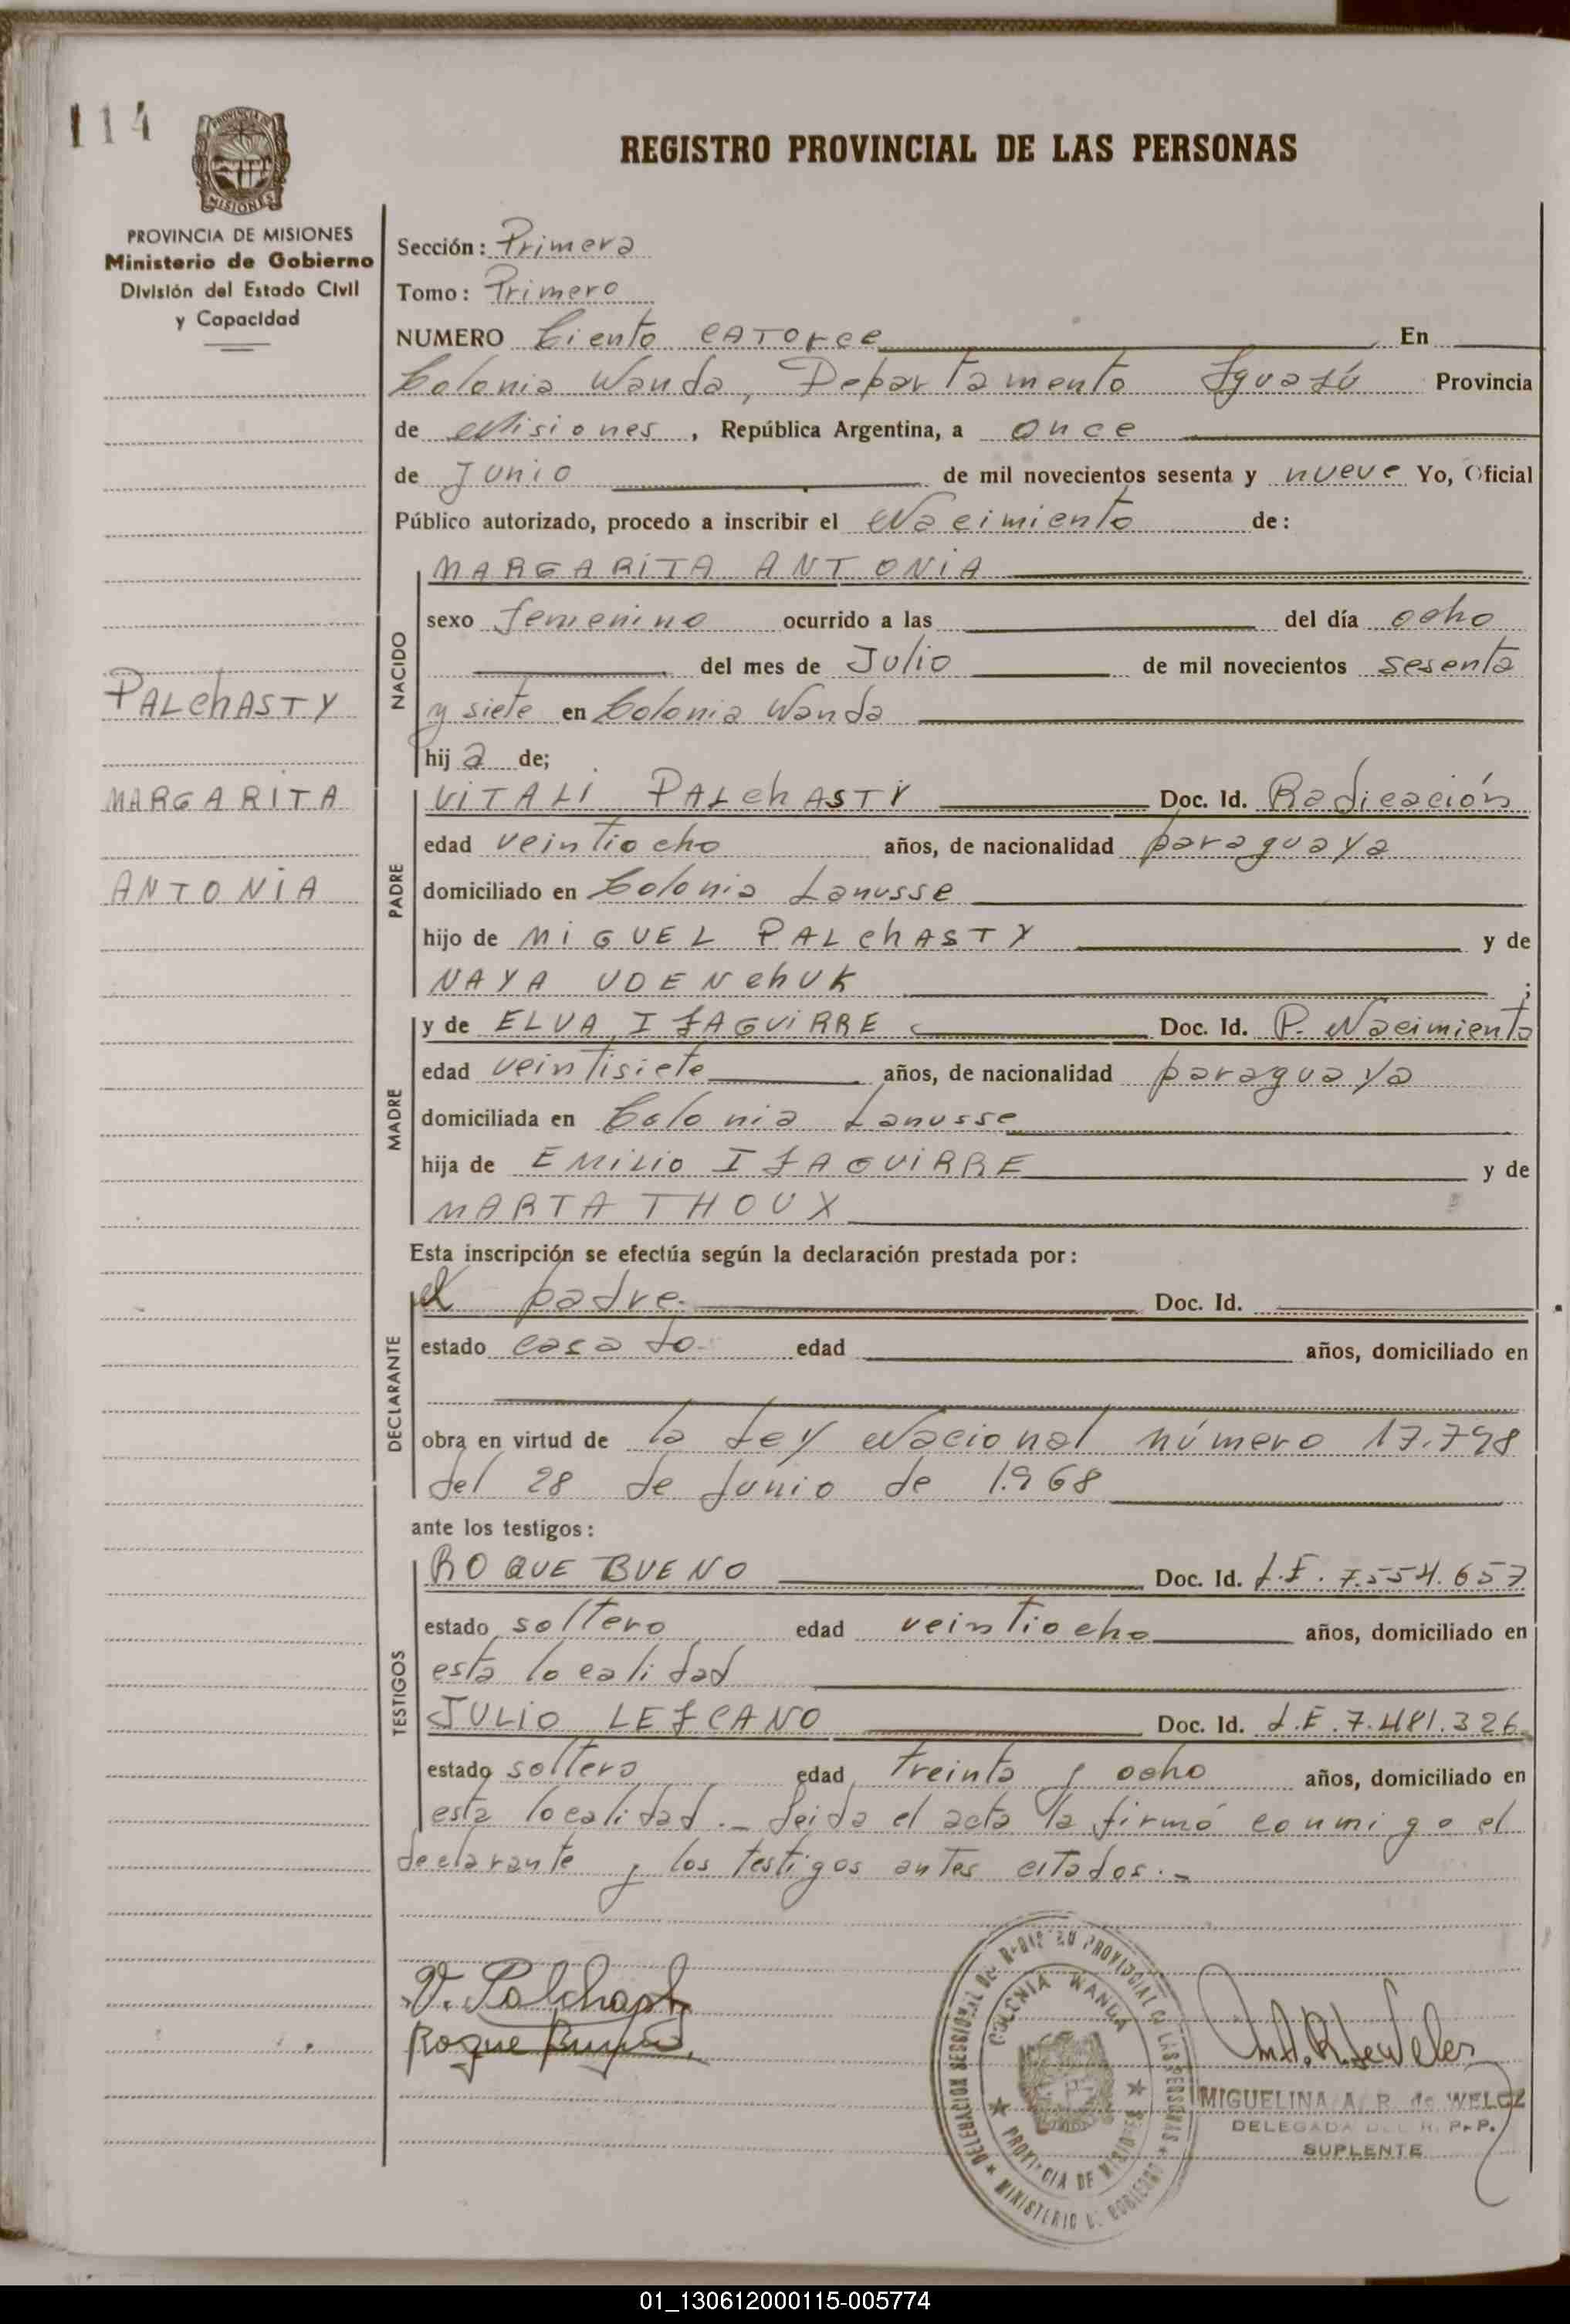 114
REGISTRO PROVINCIAL DE LAS PERSONAS
MISIONES
PROVINCIA DE MISIONES
Ministerio de Gobierno
División del Estado Civil
y Capacidad
PALCHASTY
MARGARITA
ANTONIA
Sección: Primera
Tomo: Primero
NUMERO Ciento CATORCE En
Colonia Wanda, Departamento Iguazú Provincia
de Misiones, República Argentina, a once
de Junio de mil novecientos sesenta y nueve Yo, Oficial
Público autorizado, procedo a inscribir el Nacimiento de:
NACIDO
MARGARITA ANTONIA
sexo femenino ocurrido a las del día ocho
del mes de Julio de mil novecientos sesenta
y siete en Colonia Wanda
hija de;
PADRE
VITALI PALCHASTY Doc. Id. Radicación
edad veintiocho años, de nacionalidad paraguaya
domiciliado en Colonia Lanusse
hijo de MIGUEL PALCHASTY y de
NAYA UDENCHUK ;
MADRE
y de ELVA IZAGUIRRE Doc. Id. P. Nacimiento
edad veintisiete años, de nacionalidad paraguaya
domiciliada en Colonia Lanusse
hija de EMILIO IZAGUIRRE y de
MARTA THOUX
Esta inscripción se efectúa según la declaración prestada por:
DECLARANTE
el padre.- Doc. Id.
estado casado.- edad años, domiciliado en
obra en virtud de la Ley Nacional número 17.798
del 28 de Junio de 1.968
ante los testigos:
TESTIGOS
ROQUE BUENO Doc. Id. L.E. 7.554.657
estado soltero edad veintiocho años, domiciliado en
esta localidad
JULIO LEZCANO Doc. Id. L.E. 7.481.326
estado soltero edad treinta y ocho años, domiciliado en
esta localidad.- Leida el acta la firmó conmigo el
declarante y los testigos antes citados.-
V. Palchasty
Roque Bueno
DELEGACION SECCIONAL DEL REGISTRO PROVINCIAL DE LAS PERSONAS
COLONIA WANDA
PROVINCIA DE MISIONES
MINISTERIO DE GOBIERNO
M.A.R. de Welcz
MIGUELINA A. R. de WELCZ
DELEGADA DEL R. P. P.
SUPLENTE
01_130612000115-005774